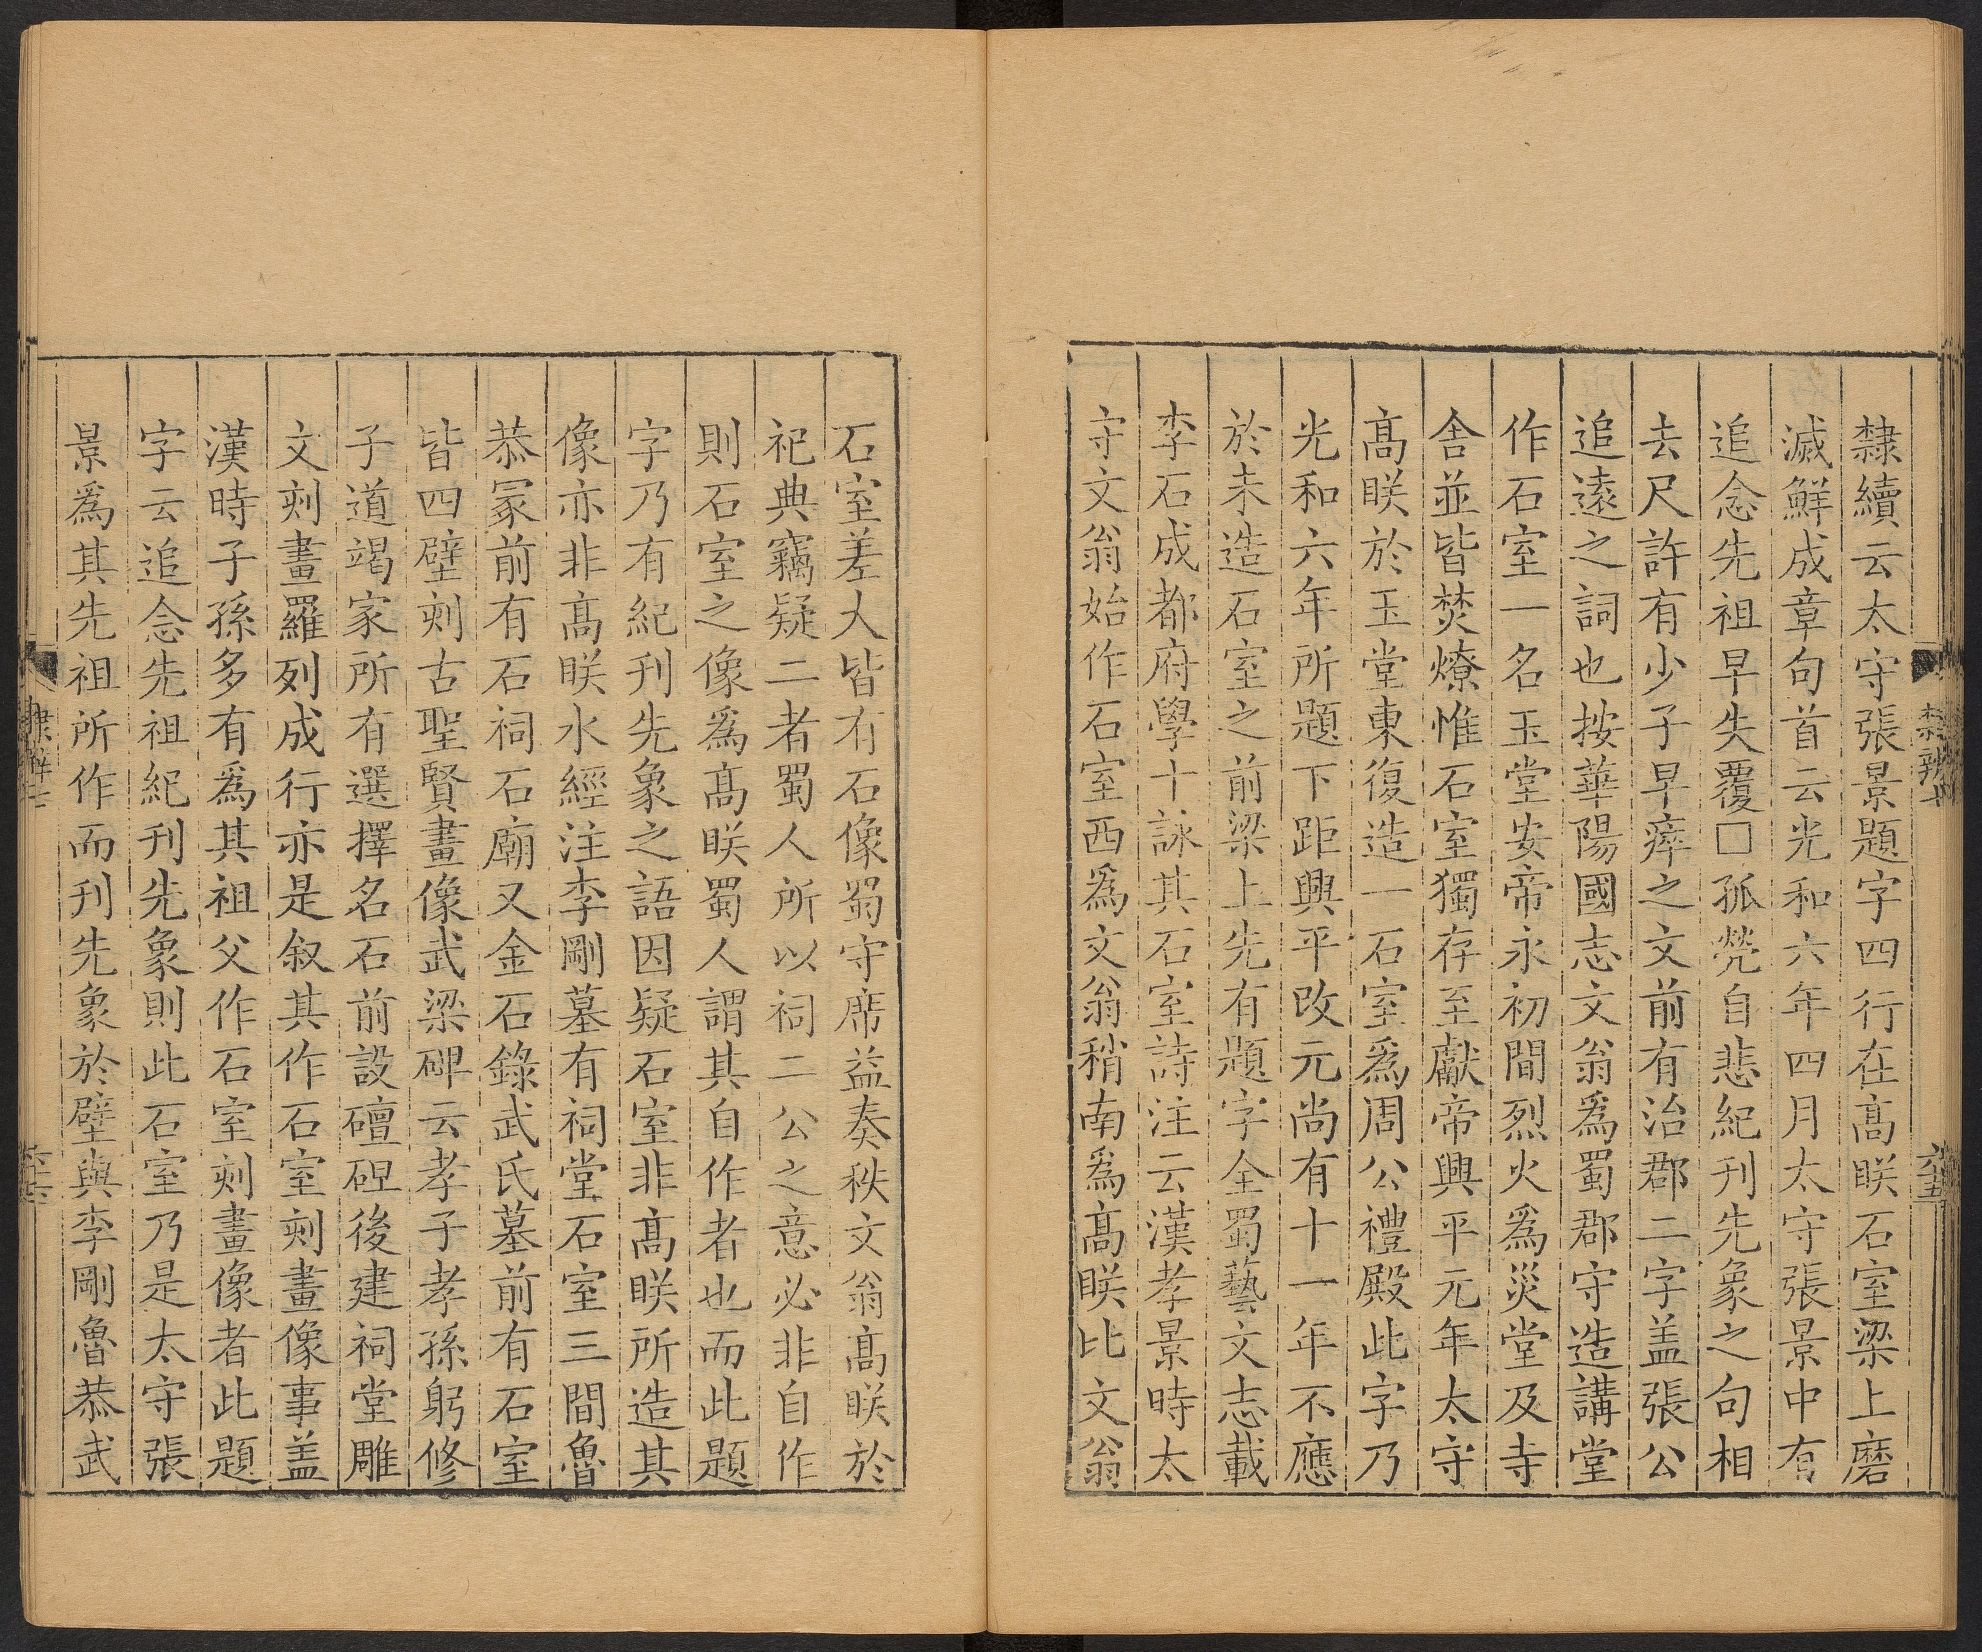 隸續云太守張景題字四行在高眹石室梁上磨
滅鮮成章句首云光和六年四月太守張景中有
追念先祖早失覆□孤煢自悲紀刊先象之句相
去尺許有少子早瘁之文前有治郡二字盖張公
追遠之詞也按華陽國志文翁爲蜀郡守造講堂
作石室一名玉堂安帝永初間烈火爲災堂及寺
舍並皆焚燎惟石室獨存至獻帝興平元年太守
高眹於玉堂東復造一石室爲周公禮殿此字乃
光和六年所題下距興平改元尚有十一年不應
於未造石室之前梁上先有題字全蜀藝文志載
李石成都府學十詠其石室詩注云漢孝景時太
守文翁始作石室西爲文翁稍南爲高眹比文翁
石室差大皆有石像蜀守席益奏秩文翁高眹於
祀典竊疑二者蜀人所以祠二公之意必非自作
則石室之像爲高眹蜀人謂其自作者也而此題
字乃有紀刊先象之語因疑石室非高眹所造其
像亦非高眹水經注李剛墓有祠堂石室三間魯
恭冢前有石祠石廟又金石錄武氏墓前有石室
皆四壁刻古聖賢畫像武梁碑云孝子孝孫躬修
子道竭家所有選擇名石前設礓䃪後建祠堂雕
文刻畫羅列成行亦是叙其作石室刻畫像事盖
漢時子孫多有爲其祖父作石室刻畫像者此題
字云追念先祖紀刊先象則此石室乃是太守張
景爲其先祖所作而刊先象於壁與李剛魯恭武